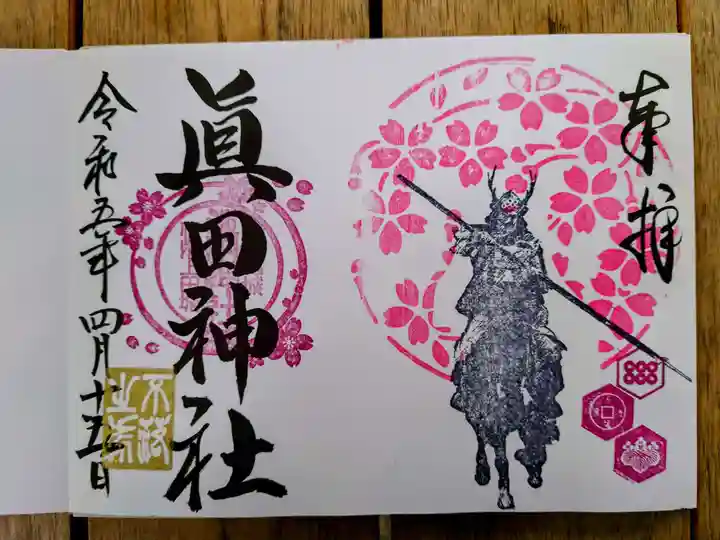 奉拝
眞田神社
令和五年四月十五日
不落
之城